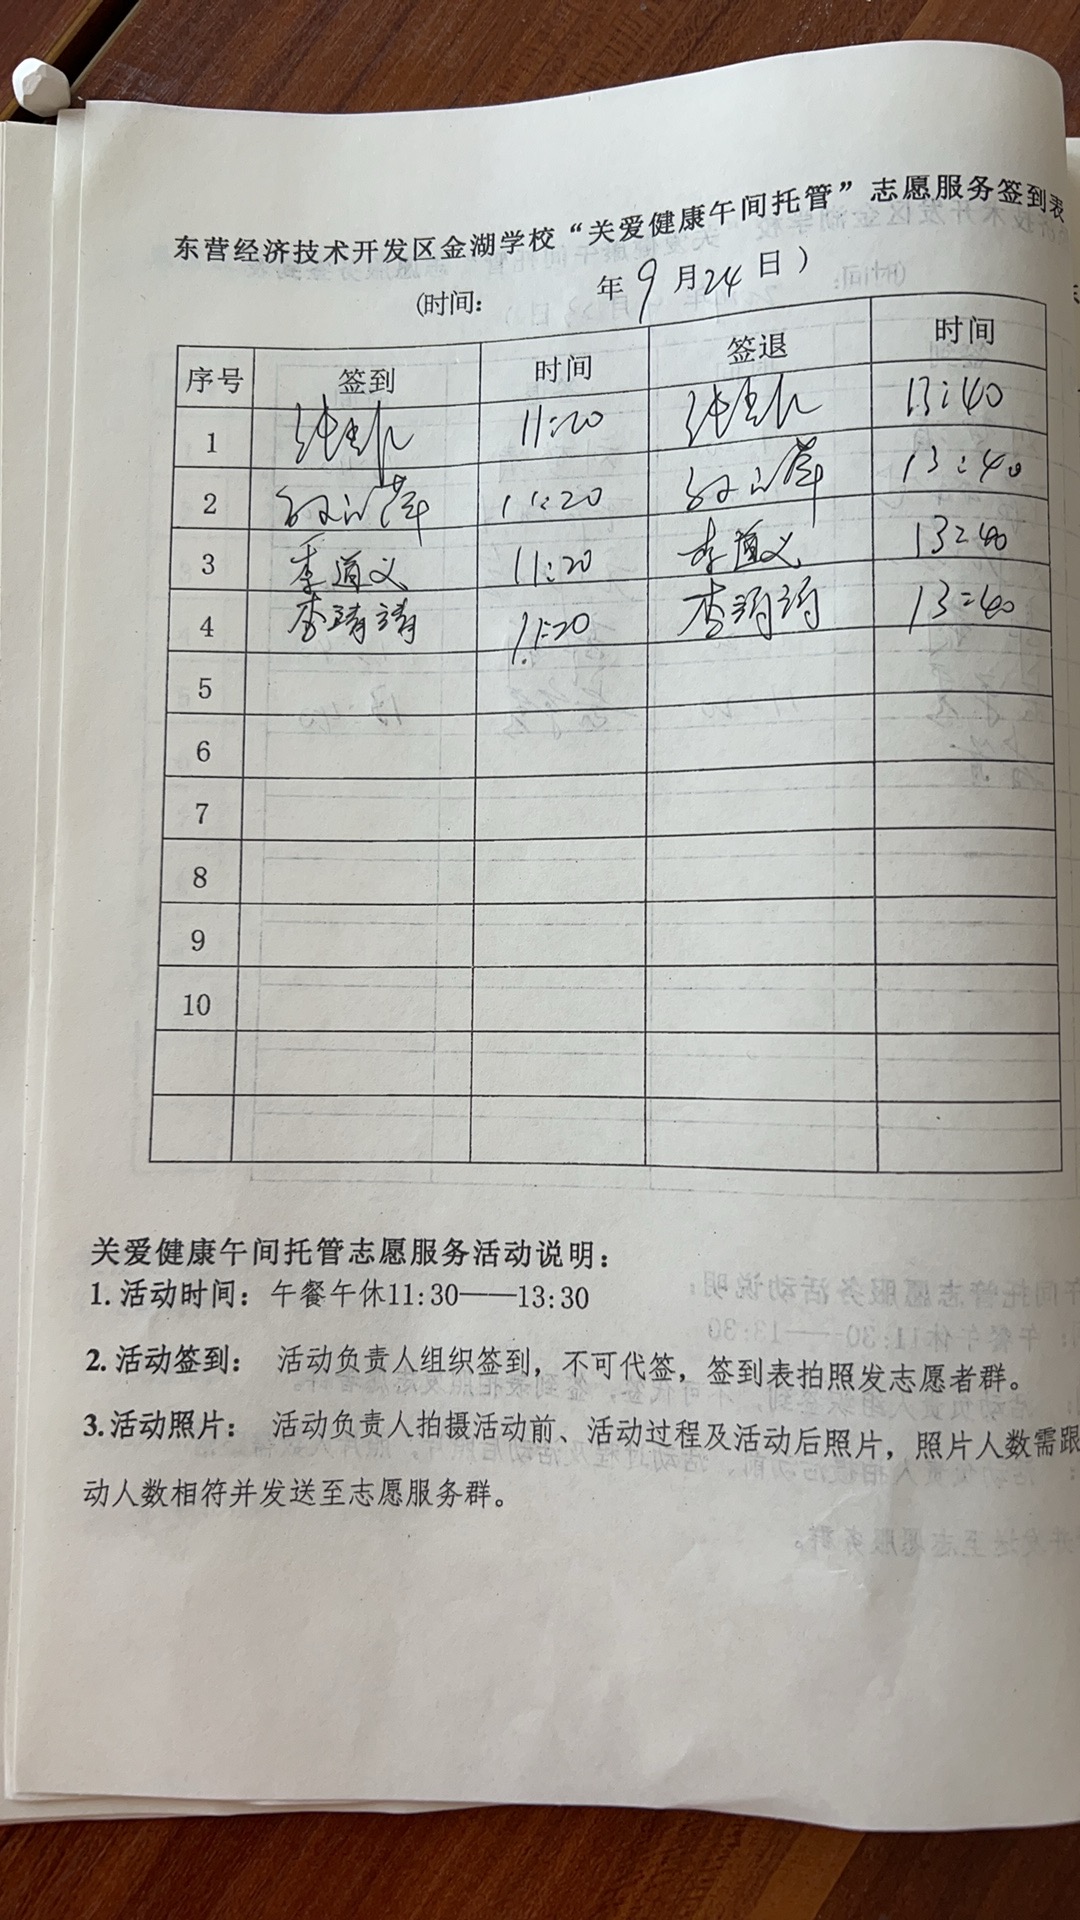 东营经济技术开发区金湖学校“关爱健康午间托管”志愿服务签到表
(时间: 年9月24日)
序号 签到 时间 签退 时间
1 11:20 13:40
2 11:20 13:40
3 李道义 11:20 李道义 13:40
4 李靖靖 11:20 李靖靖 13:40
5
6
7
8
9
10
关爱健康午间托管志愿服务活动说明:
1. 活动时间: 午餐午休11:30——13:30
2. 活动签到: 活动负责人组织签到, 不可代签, 签到表拍照发志愿者群。
3. 活动照片: 活动负责人拍摄活动前、活动过程及活动后照片, 照片人数需跟
动人数相符并发送至志愿服务群。